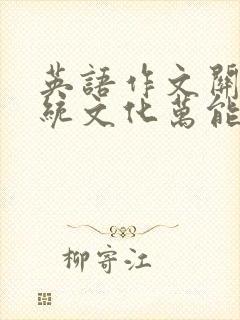 英語作文開
統文化萬能
柳寄江